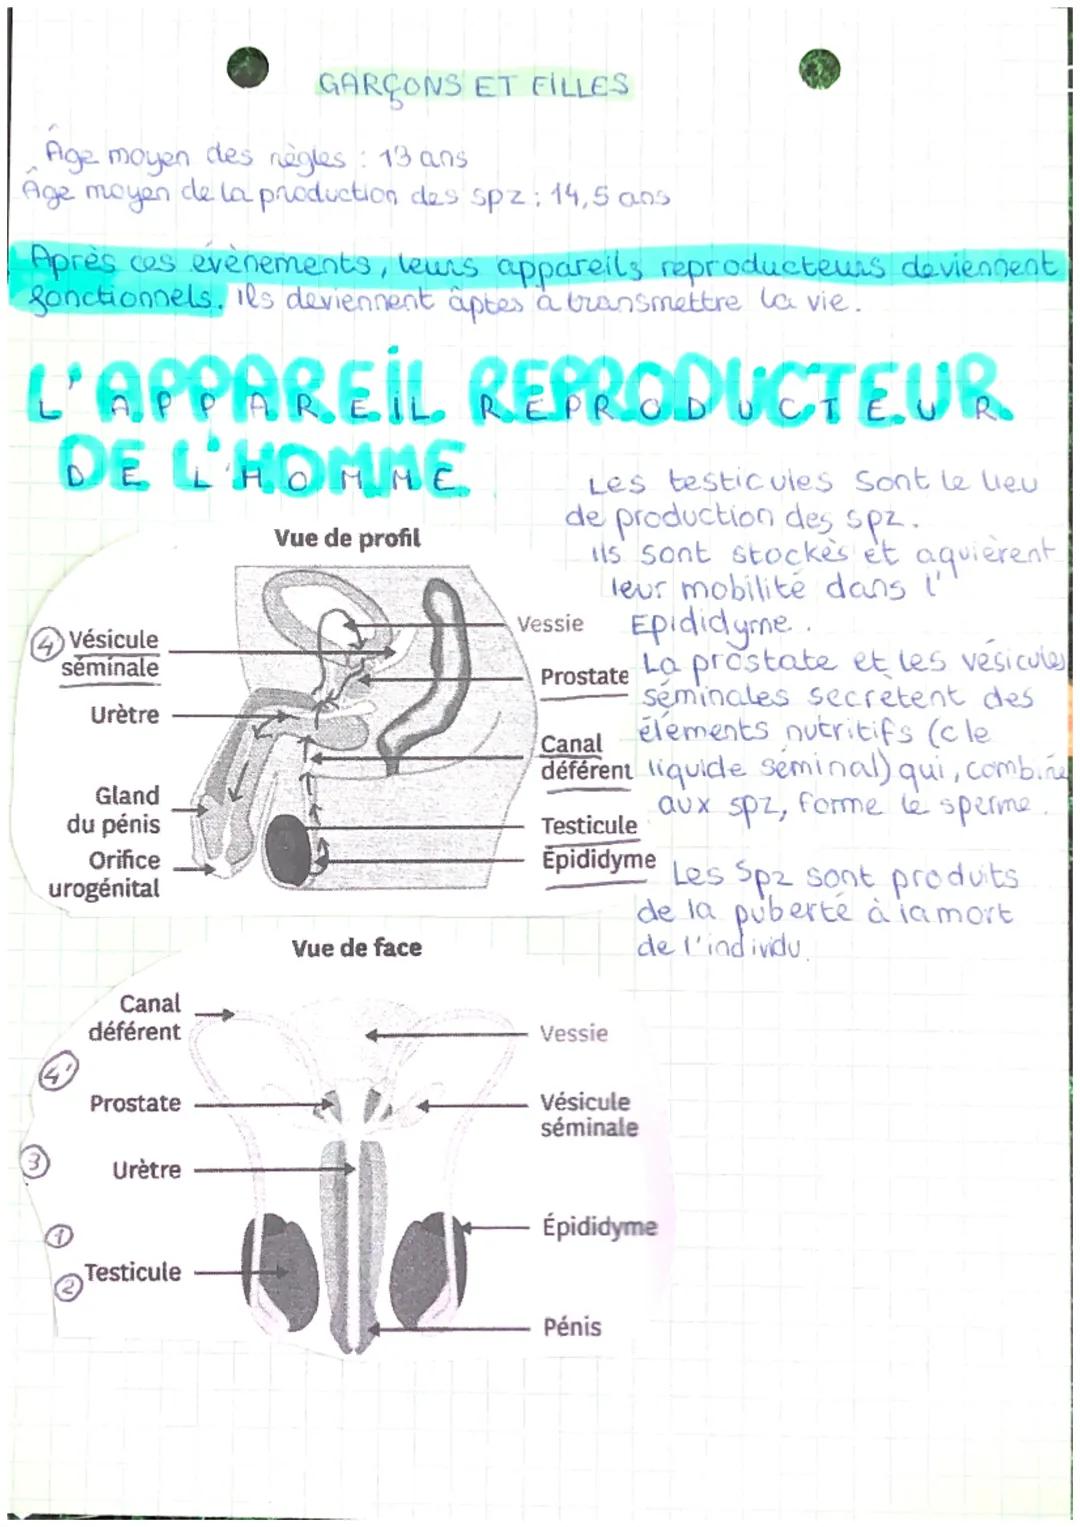 GARÇONS ET FILLES
Âge moyen des règles : 13 ans
Âge moyen de la production des spz : 14,5 ans
Après ces évènements, leurs appareils reproducteurs deviennent
fonctionnels. Ils deviennent âptes à transmettre la vie.
L'APPAREIL REPRODUCTEUR
DE L'HOMME
Les testicules sont le lieu
de production des spz.
ils sont stockés et aquièrent
leur mobilité dans l'
Epididyme.
La prostate et les vésicules
séminales secrètent des
éléments nutritifs (cle
liquide séminal) qui, combiné
aux spz, forme le sperme.
Les Spz sont produits
de la puberté à la mort
de l'individu.
Vue de profil
4 Vésicule
séminale
Urètre
Gland
du pénis
Orifice
urogénital
Vessie
Prostate
Canal
déférent
Testicule
Épididyme
Vue de face
Canal
déférent
4'
Prostate
3
Urètre
1
2 Testicule
Vessie
Vésicule
séminale
Épididyme
Pénis